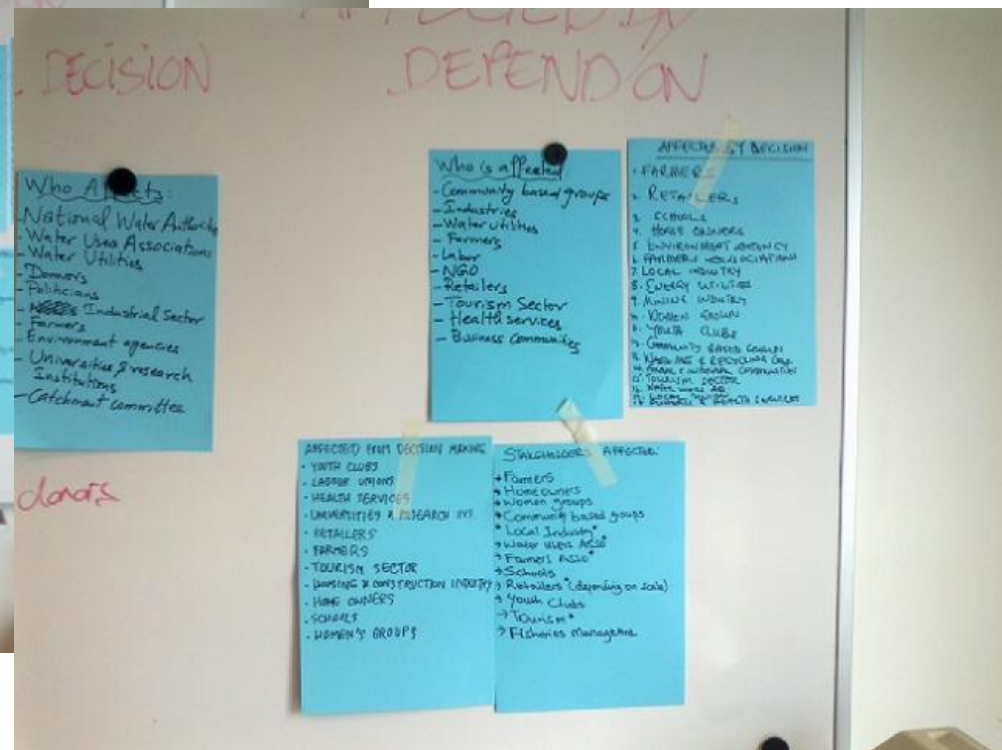 AFFECTED BY
DECISION
DEPEND ON
Who Affects:
- National Water Authority
- Water Uses Associations
- Water Utilities
- Donnors
- Politicians
- Industrial Sector
- Farmers
- Environment agencies
- Universities & research
Institutions
- Catchment committee
donors
Who is affected
- Community based groups
- Industries
- Water utilities
- Farmers
- Labor
- NGO
- Retailers
- Tourism Sector
- Health services
- Business Communities
AFFECTED BY DECISION
1. FARMERS
2. RETAILERS
3. SCHOOLS
4. HOME OWNERS
5. ENVIRONMENT AGENCY
6. FARMERS ASSOCIATIONS
7. LOCAL INDUSTRY
8. ENERGY UTILITIES
9. MINING INDUSTRY
WOMEN GROUPS
YOUTH CLUBS
COMMUNITY BASED GROUPS
& RECYCLING
TOURISM SECTOR
& HEALTH SERVICES
AFFECTED FROM DECISION MAKING
· YOUTH CLUBS
· LABOUR UNIONS
· HEALTH SERVICES
· UNIVERSITIES & RESEARCH INS.
· RETAILERS
· FARMERS
· TOURISM SECTOR
· HOUSING & CONSTRUCTION INDUSTRY
· HOME OWNERS
· SCHOOLS
· WOMEN'S GROUPS
STAKEHOLDERS AFFECTED:
→ Farmers
→ Home owners
→ Women groups
→ Community based groups
→ Local Industry*
→ Water users Asso*
→ Farmers Asso*
→ Schools
→ Retailers* (depending on scale)
→ Youth Clubs
→ Tourism*
→ Fisheries management